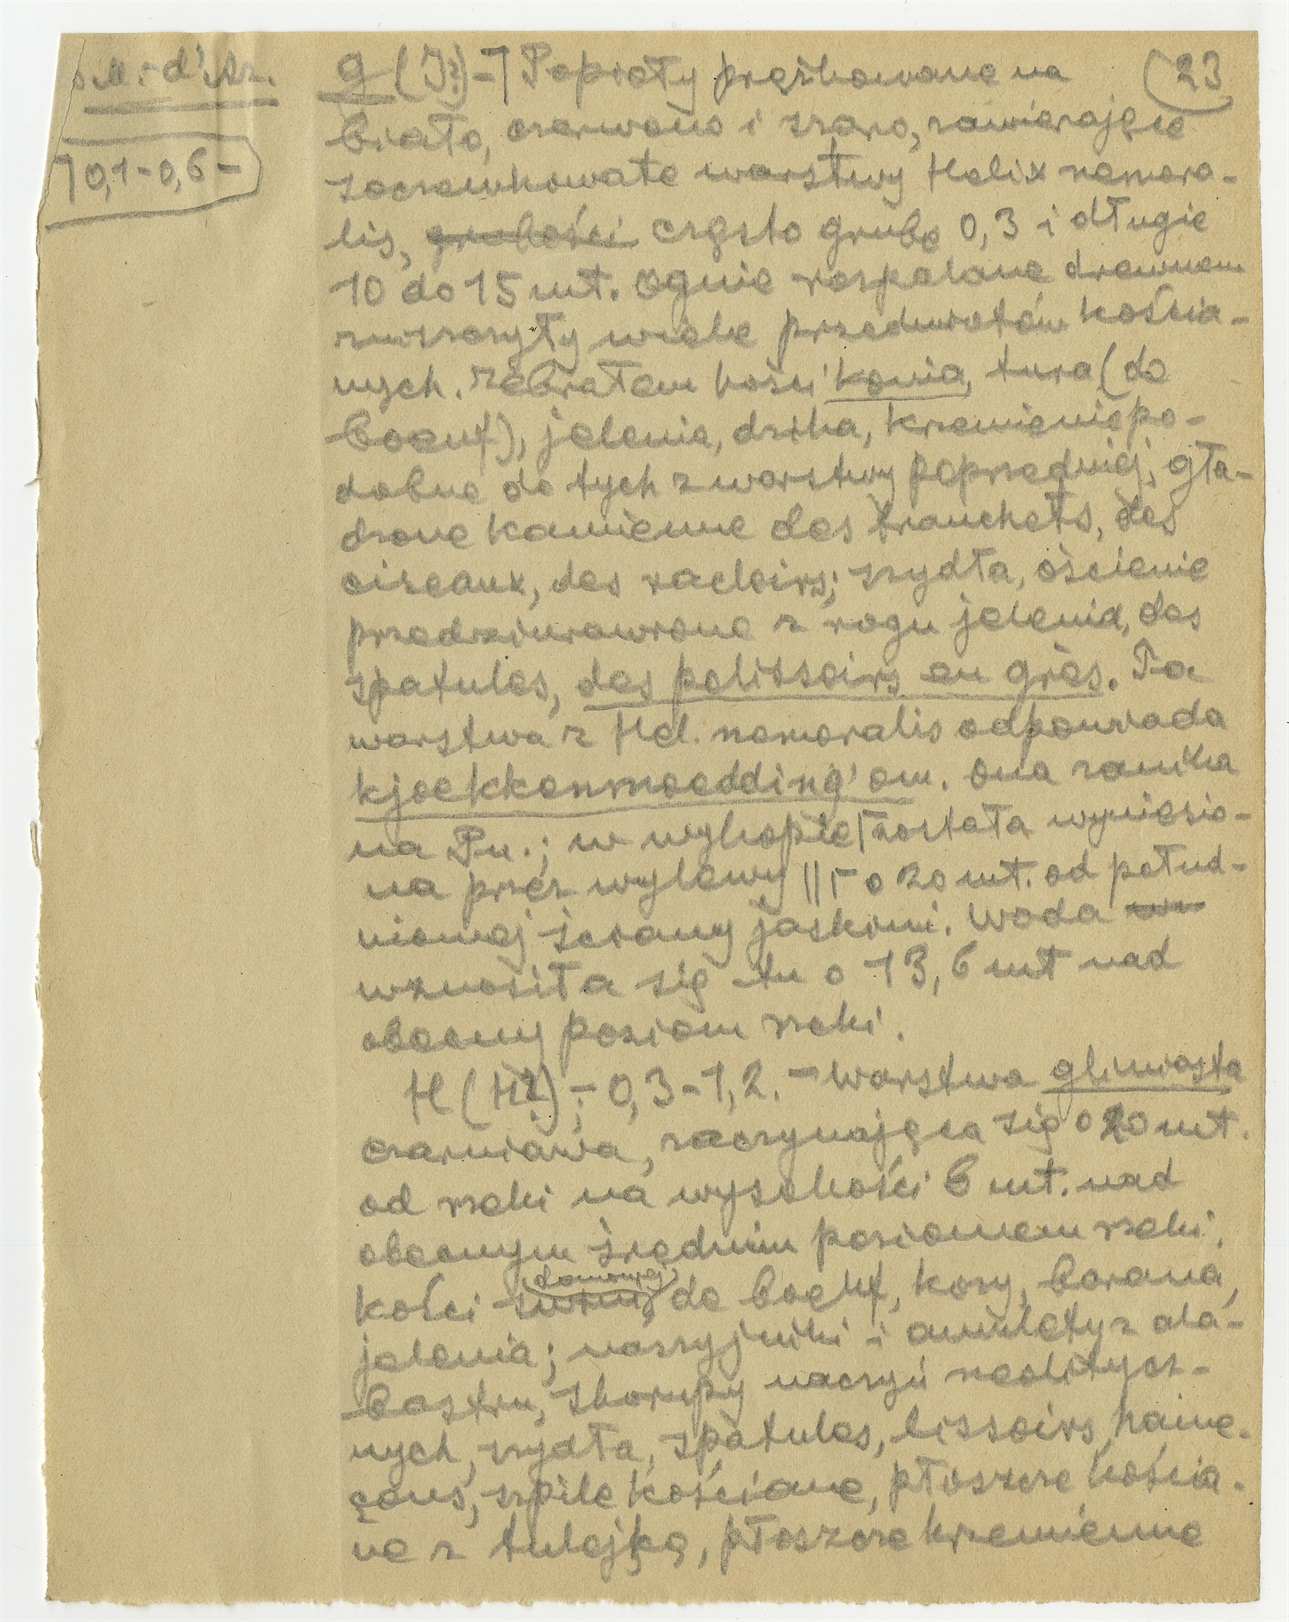 M.-d'Az.
10,1-0,6-
g (I?) - 7 Popioły prążkowane na
(23
biało, czerwono i szaro, zawierające
soczewkowate warstwy Helix nemora-
lis, grubości często grube 0,3 i długie
10 do 15 mt. Ognie rozpalane drewnem
zniszczyły wiele przedmiotów kościa-
nych. Zebrałem kości konia, tura (de
boeuf), jelenia, dzika, krzemienie po-
dobne do tych z warstwy poprzedniej, gła-
dzone kamienne des tranchets, des
ciseaux, des racloirs; szydła, ościenie
przedziurawione z rogu jelenia, des
spatules, des polissoirs en grès. Ta
warstwa z Hel. nemoralis odpowiada
kjoekkenmoedding'om. Ona zanika
na Pn.; w wykopie została wyniesio-
na przez wylewy || r o 20 mt. od połud-
niowej ściany jaskini. Woda
wznosiła się tu o 13,6 mt nad
obecny poziom rzeki.
H (H?) - 0,3-1,2. - warstwa gliniasta
czarniawa, zaczynająca się o 20 mt.
od rzeki na wysokości 6 mt. nad
obecnym średnim poziomem rzeki.
domowej
kości świni, de boeuf, kozy, barana,
jelenia; naszyjniki i amulety z ala-
bastru, skorupy naczyń neolitycz-
nych, szydła, spatules, lissoirs, hame-
çons, szpile kościane, płoszcze kościa-
ne z tulejką, płoszcze krzemienne